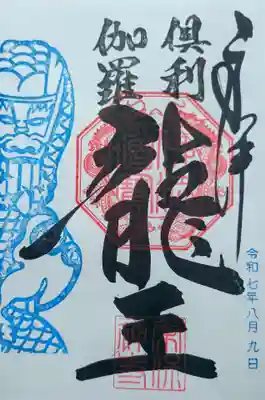 奉拝
倶利
伽羅
龍王
令和七年八月九日